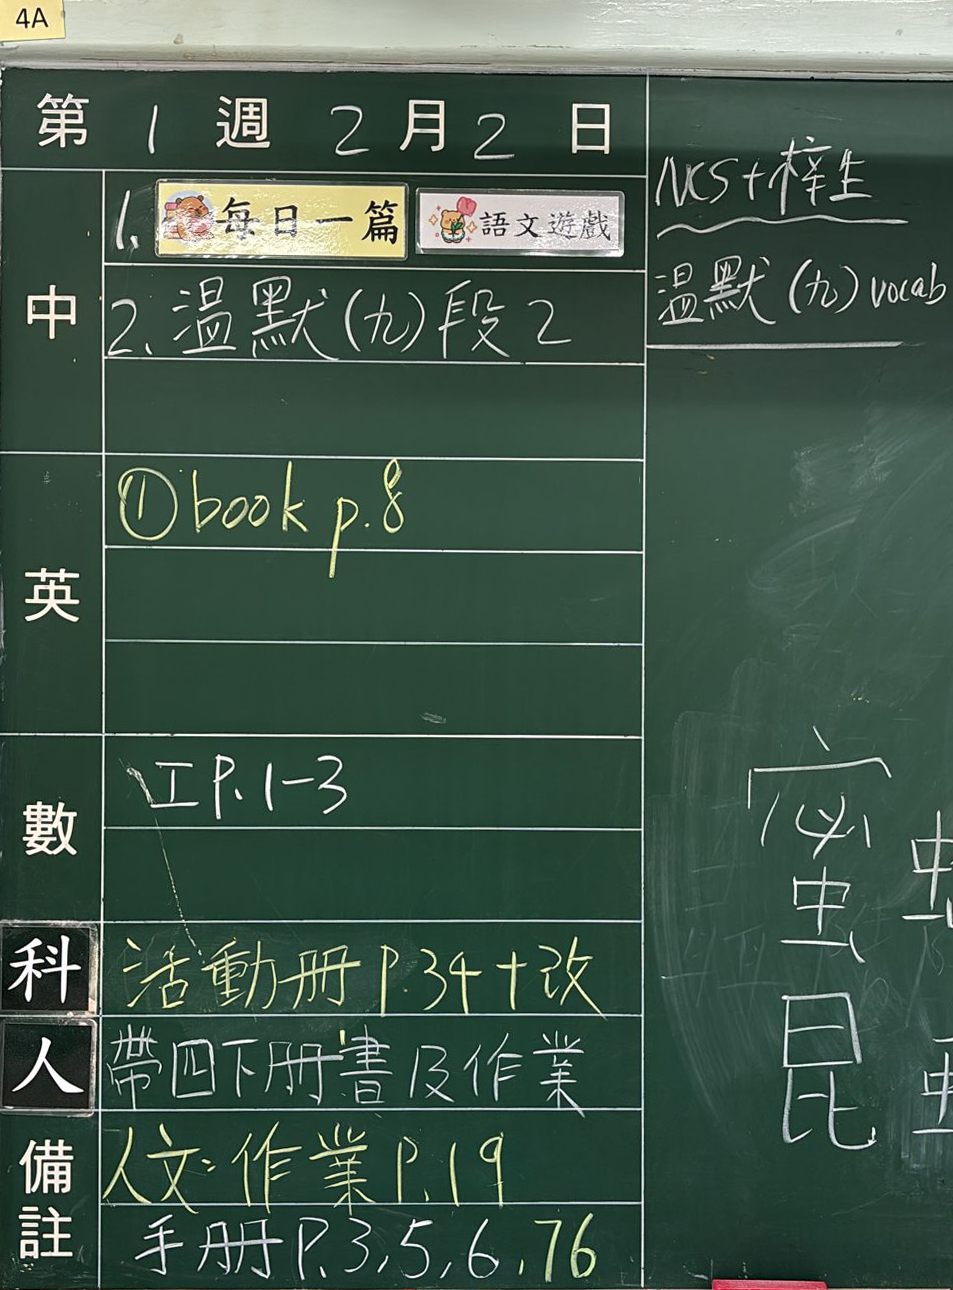 4A
第 1 週 2 月 2 日
中
1. 每日一篇 語文遊戲
2. 溫默(九)段2
英
① book p.8
數
工 P.1-3
科
活動冊 P.34+改
人
帶四下冊書及作業
備註
人文:作業 P.19
手冊 P.3, 5, 6, 76
NCS+梓生
溫默(九) vocab
蜜
昆